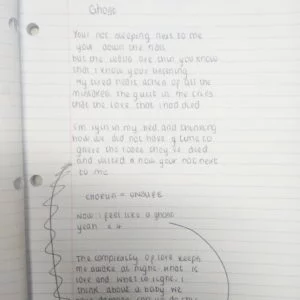 Ghost
Your not sleeping next to me
your down the hall
but the walls are thin you know
that I know your
my tired heart aches of all the
mistakes the guilt in me cries
that the love that I had died
I'm lyin in my bed and thinking
how we did not have a time to
grieve the died
and a now your not next
to me
CHORUS = UNSURE
Now I feel like a ghost
yeah x 4
The complexity of love keeps
me awake at night. what is
love and what is right. I
think about a baby we